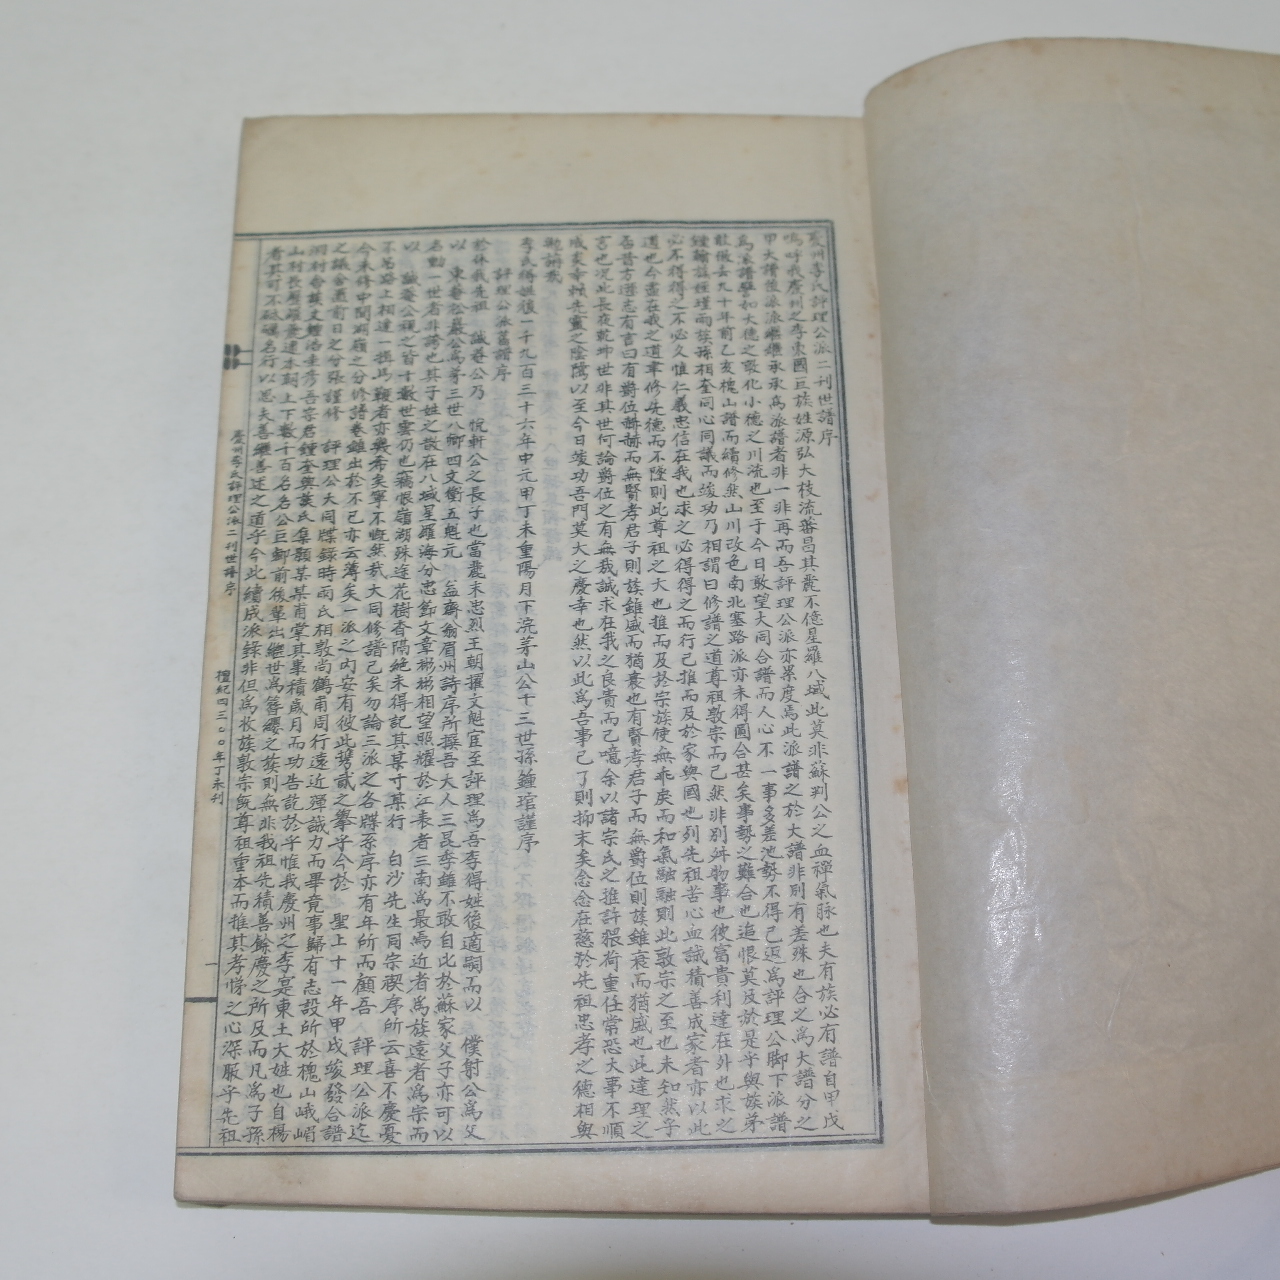 慶州李氏評理公派二刊世譜序
嗚呼我慶州之李東國巨族姓源弘大枝流蕃昌其麗不億星羅八域此莫非蘇判公之血禪氣脉也夫有族必有譜自甲戊
甲大譜後派派繼繼承承爲派譜者非一非再而吾評理公派亦累度焉此派譜之於大譜非別有差殊也合之爲大譜分之
爲派譜譬如大德之敦化小德之川流也至于今日敢望大同合譜而人心不一事多差池勢不得已返爲評理公脚下派譜
敢倣去九十年前乙亥槐山譜而續修然山川改色南北塞路派亦未得圓合甚矣事勢之難合也追恨莫及於是乎與族弟
鍾翰謠鍾瑾雨族孫相奎同心同議而竣功乃相謂曰修譜之道尊祖敦宗而已然非別舛物事也彼富貴利達在外也求之
必不得得之不必久惟仁義忠信在我也求之必得得之而行己推而及於家與國也列先祖苦心血誠積善成家者亦以此
道也今盡在我之道聿修先德而不墜則此尊祖之大也推而及於宗族使無乖戾而和氣融融則此敦宗之至也未知然乎
否昔方遜志有言曰有爵位赫赫而無賢孝君子則族雖盛而猶衰也有賢孝君子而無爵位則族雖衰而猶盛也此達理之
言也况此長夜乾坤世非其世何論爵位之有無哉誠求在我之良貴而已噫余以諸宗氏之推許猥荷重任常恐大事不順
成矣幸賴先靈之陰隲以至今日竣功吾門莫大之慶幸也然以此爲吾事已了則抑末矣念念在慈於先祖忠孝之德相與
勉旃哉
李氏得姓後一千九百三十六年中元甲丁未重陽月下浣茅山公十三世孫鍾琯謹序
評理公派舊譜序
於休我先祖 誠菴公乃 悅軒公之長子也當麗末忠烈王朝擢文魁宦至評理爲吾李得姓後適嗣而以 僕射公爲父
以 東菴松巖公爲弟三世八卿四文衡五魁元 益齋翁眉州詩序所撰吾大人三昆季雖不敢自比於蘇家父子亦可以
名動一世者非誇也其子姓之散在八域星羅海分忠節文章彬彬相望照耀於江表者三南爲最焉近者爲族遠者爲宗而
以 誠菴公視之皆十數世雲仍也竊恨嶺湖殊迩花樹香隔絶未得記其某寸某行 白沙先生同宗禊序所云喜不慶憂
不吊路上相逢一揖馬鞭者亦與希矣寧不慨然哉大同修譜已矣勿論三派之各牒系序亦有年所而顧吾 評理公派迄
今未修中間湖嶺之分修譜卷雖出於不已亦云薄矣一派之內安有彼此携貳之擧乎今於 聖上十一年甲戌竣發合譜
之議舍盡前日之分張謹修 評理公大同牒錄時雨氏相敦尚鶴甫周行遠近殫誠力而畢竟事歸有志設所於槐山峨嵋
者其可不砥礪名行以思夫善繼善述之道乎今此續成派錄非但爲收族敦宗旣尊祖重本而推其孝悌之心深服乎先祖
慶州李氏評理公派二刊世譜序
檀紀四三〇〇年丁未刊